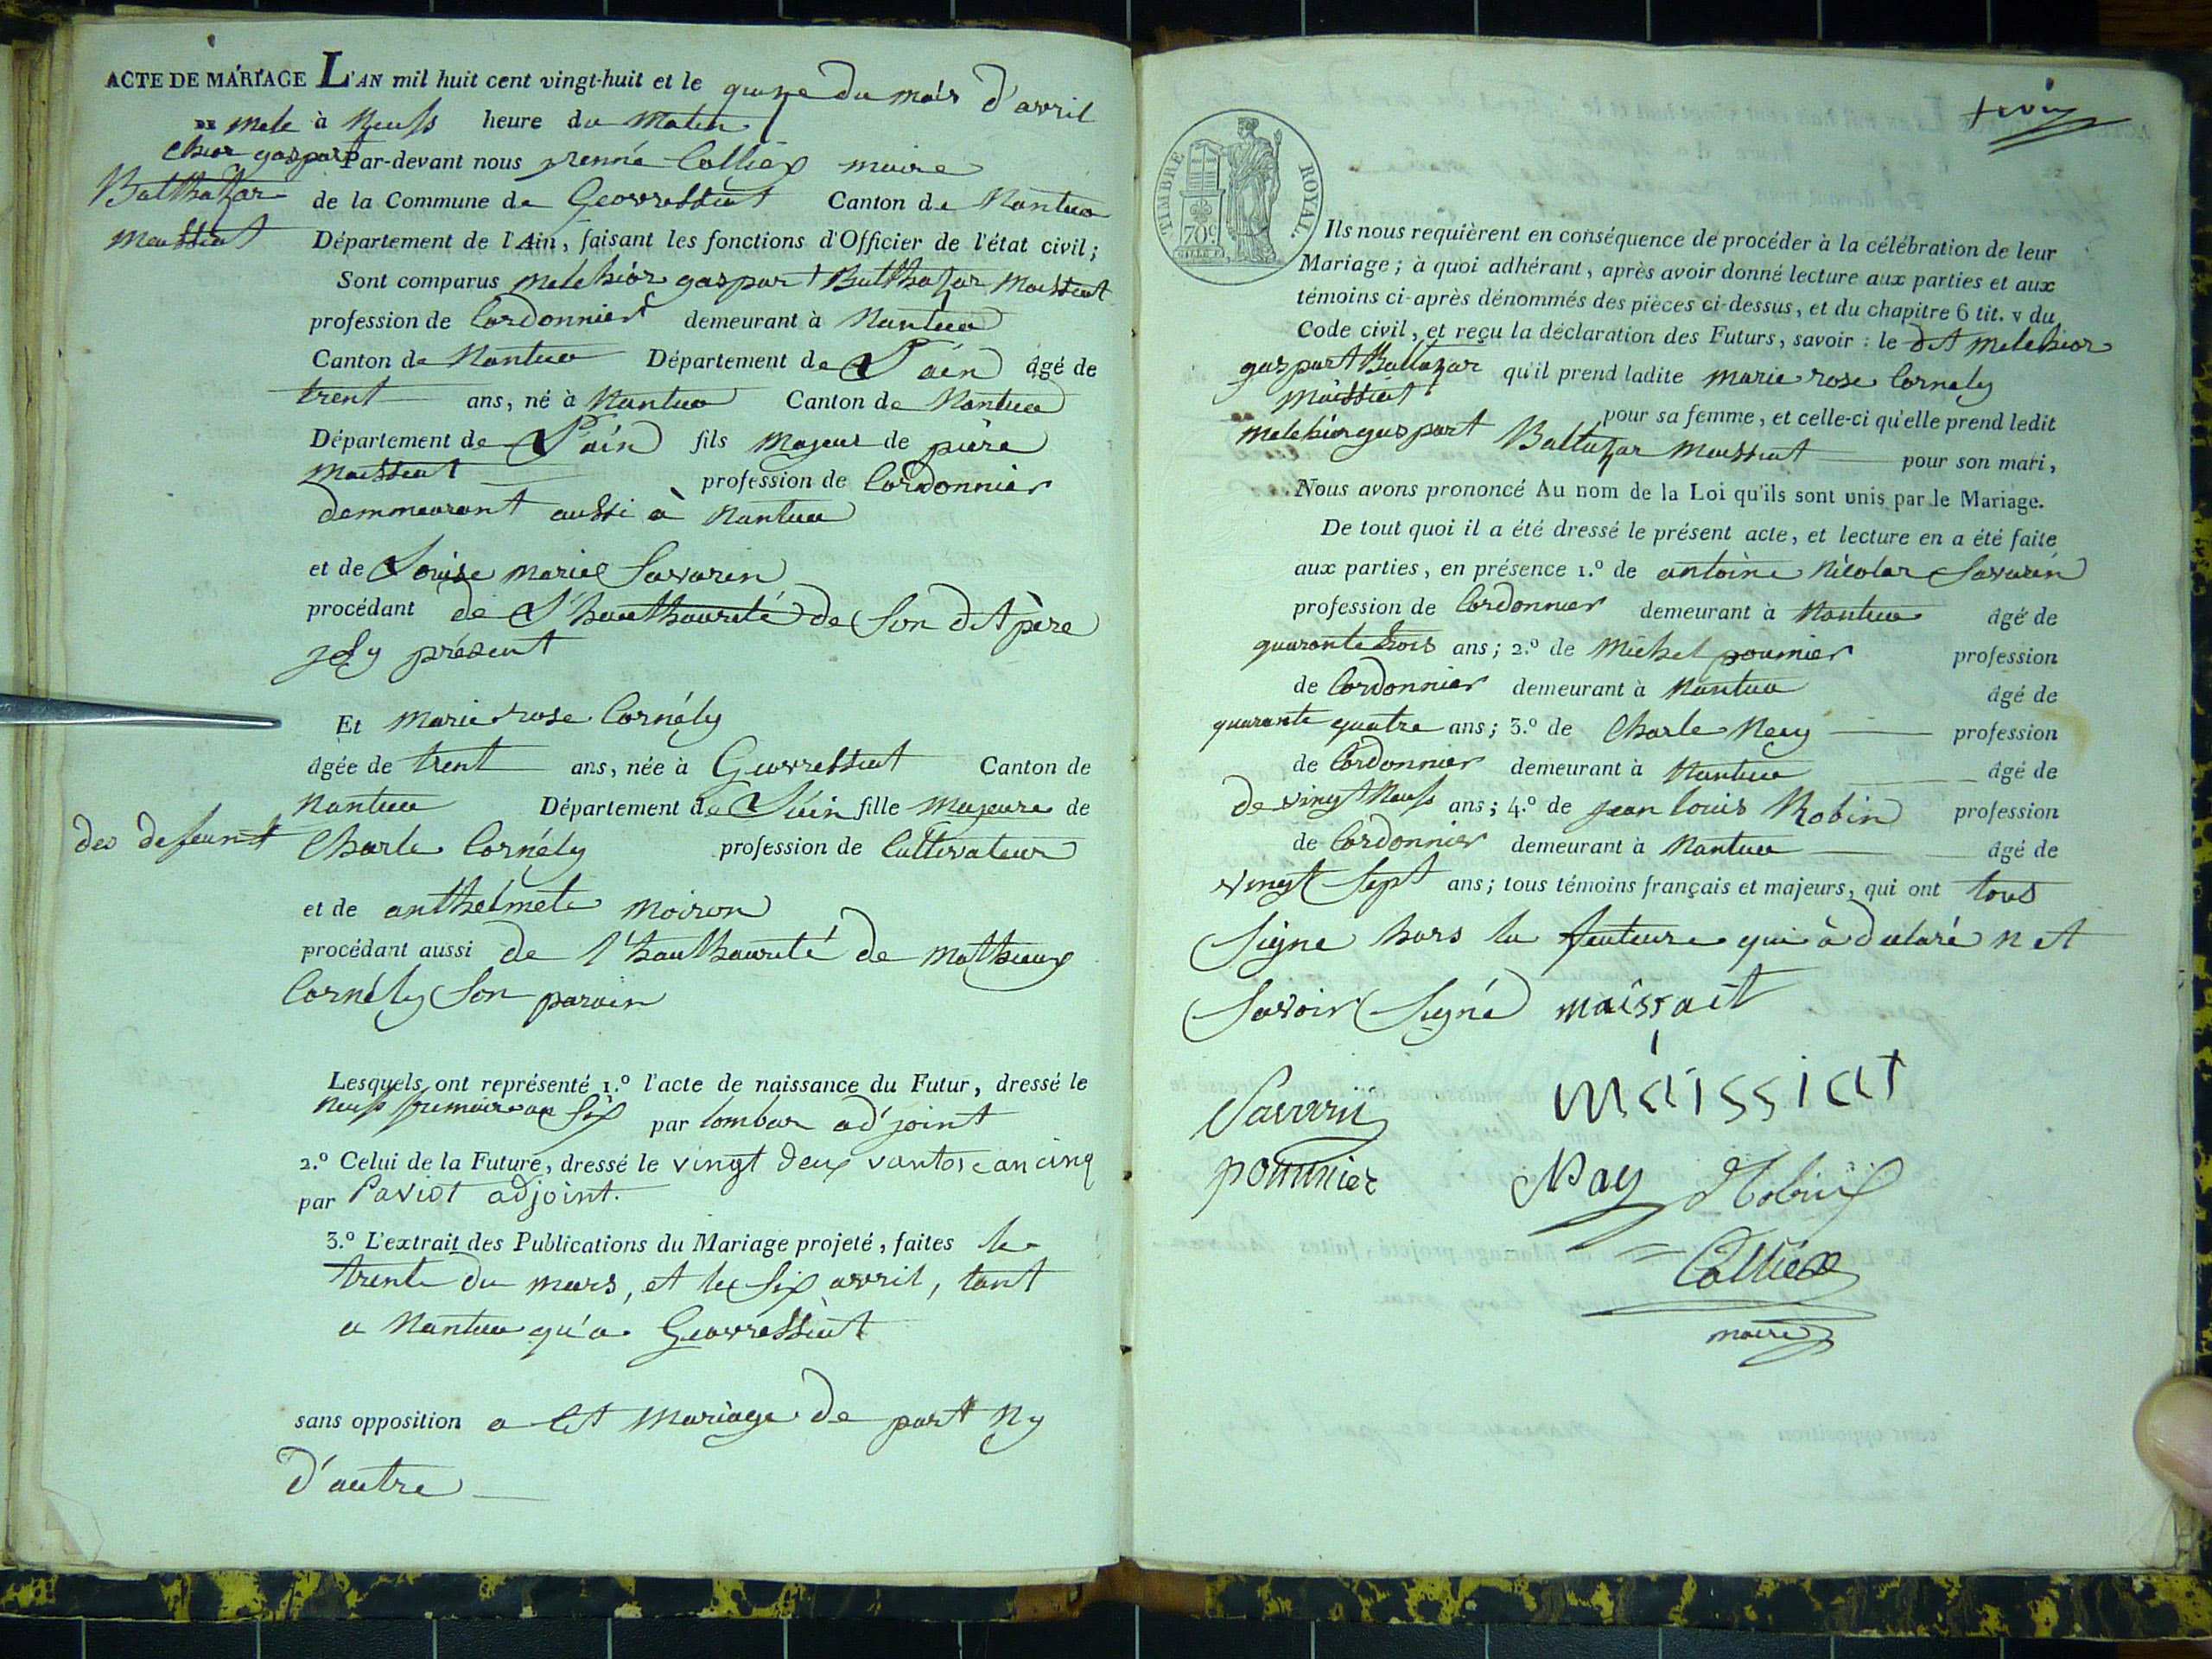 ACTE DE MARIAGE L'AN mil huit cent vingt-huit et le quinze du mois d'avril
DE Mele à Neuf heure du Matin
chior gaspar Par-devant nous Colliex maire
Balthazar de la Commune de Geovressiat Canton de Nantua
Maissiat Département de l'Ain, faisant les fonctions d'Officier de l'état civil;
Sont comparus Melchior gaspart Balthazar Maissiat
profession de Cordonnier demeurant à Nantua
Canton de Nantua Département de L'ain âgé de
trent ans, né à Nantua Canton de Nantua
Département de L'ain fils Majeur de pière
Maissiat profession de Cordonnier
demmeurant aussi à Nantua
et de Louise Marie Savarin
procédant de L'hauthourité de Son dit père
présent
Et Marie rose Cornély
âgée de trent ans, née à Geovressiat Canton de
Nantua Département de L'ain fille Majeure de
des defeunt Charle Cornély profession de Cultivateur
et de anthelmete Moiron
procédant aussi de l'hauthourité de Mathieux
Cornély Son parain
Lesquels ont représenté 1.º l'acte de naissance du Futur, dressé le
neuf frimaire an Six par lombar ad'joint
2.º Celui de la Future, dressé le vingt deux vantose an cinq
par Paviot adjoint.
3.º L'extrait des Publications du Mariage projeté, faites le
trente du mars, et le Six avril, tant
a Nantua qu'a Geovressiat
sans opposition a Cet Mariage de part Ny
d'autre
TIMBRE ROYAL.
70c
Ils nous requièrent en conséquence de procéder à la célébration de leur
Mariage; à quoi adhérant, après avoir donné lecture aux parties et aux
témoins ci-après dénommés des pièces ci-dessus, et du chapitre 6 tit. v du
Code civil, et reçu la déclaration des Futurs, savoir: le dit Melchior
gaspart Baltazar qu'il prend ladite Marie rose Cornely
Maissiat pour sa femme, et celle-ci qu'elle prend ledit
Melchior gaspart Baltazar Maissiat pour son mari,
Nous avons prononcé Au nom de la Loi qu'ils sont unis par le Mariage.
De tout quoi il a été dressé le présent acte, et lecture en a été faite
aux parties, en présence 1.º de antoine Nicolas Savarin
profession de Cordonnier demeurant à Nantua âgé de
quarante trois ans; 2.º de Michel poumier profession
de Cordonnier demeurant à Nantua âgé de
quarante quatre ans; 3.º de Charle Ney profession
de Cordonnier demeurant à Nantua âgé de
de vingt Neuf ans; 4.º de jean louis Robin profession
de Cordonnier demeurant à Nantua âgé de
vingt Sept ans; tous témoins français et majeurs, qui ont tous
Signe hors la feuteure qui à déclaré n et
Savoir Signé maissait
Savarin maissiat
poumier Nay Robin
Colliex
maire